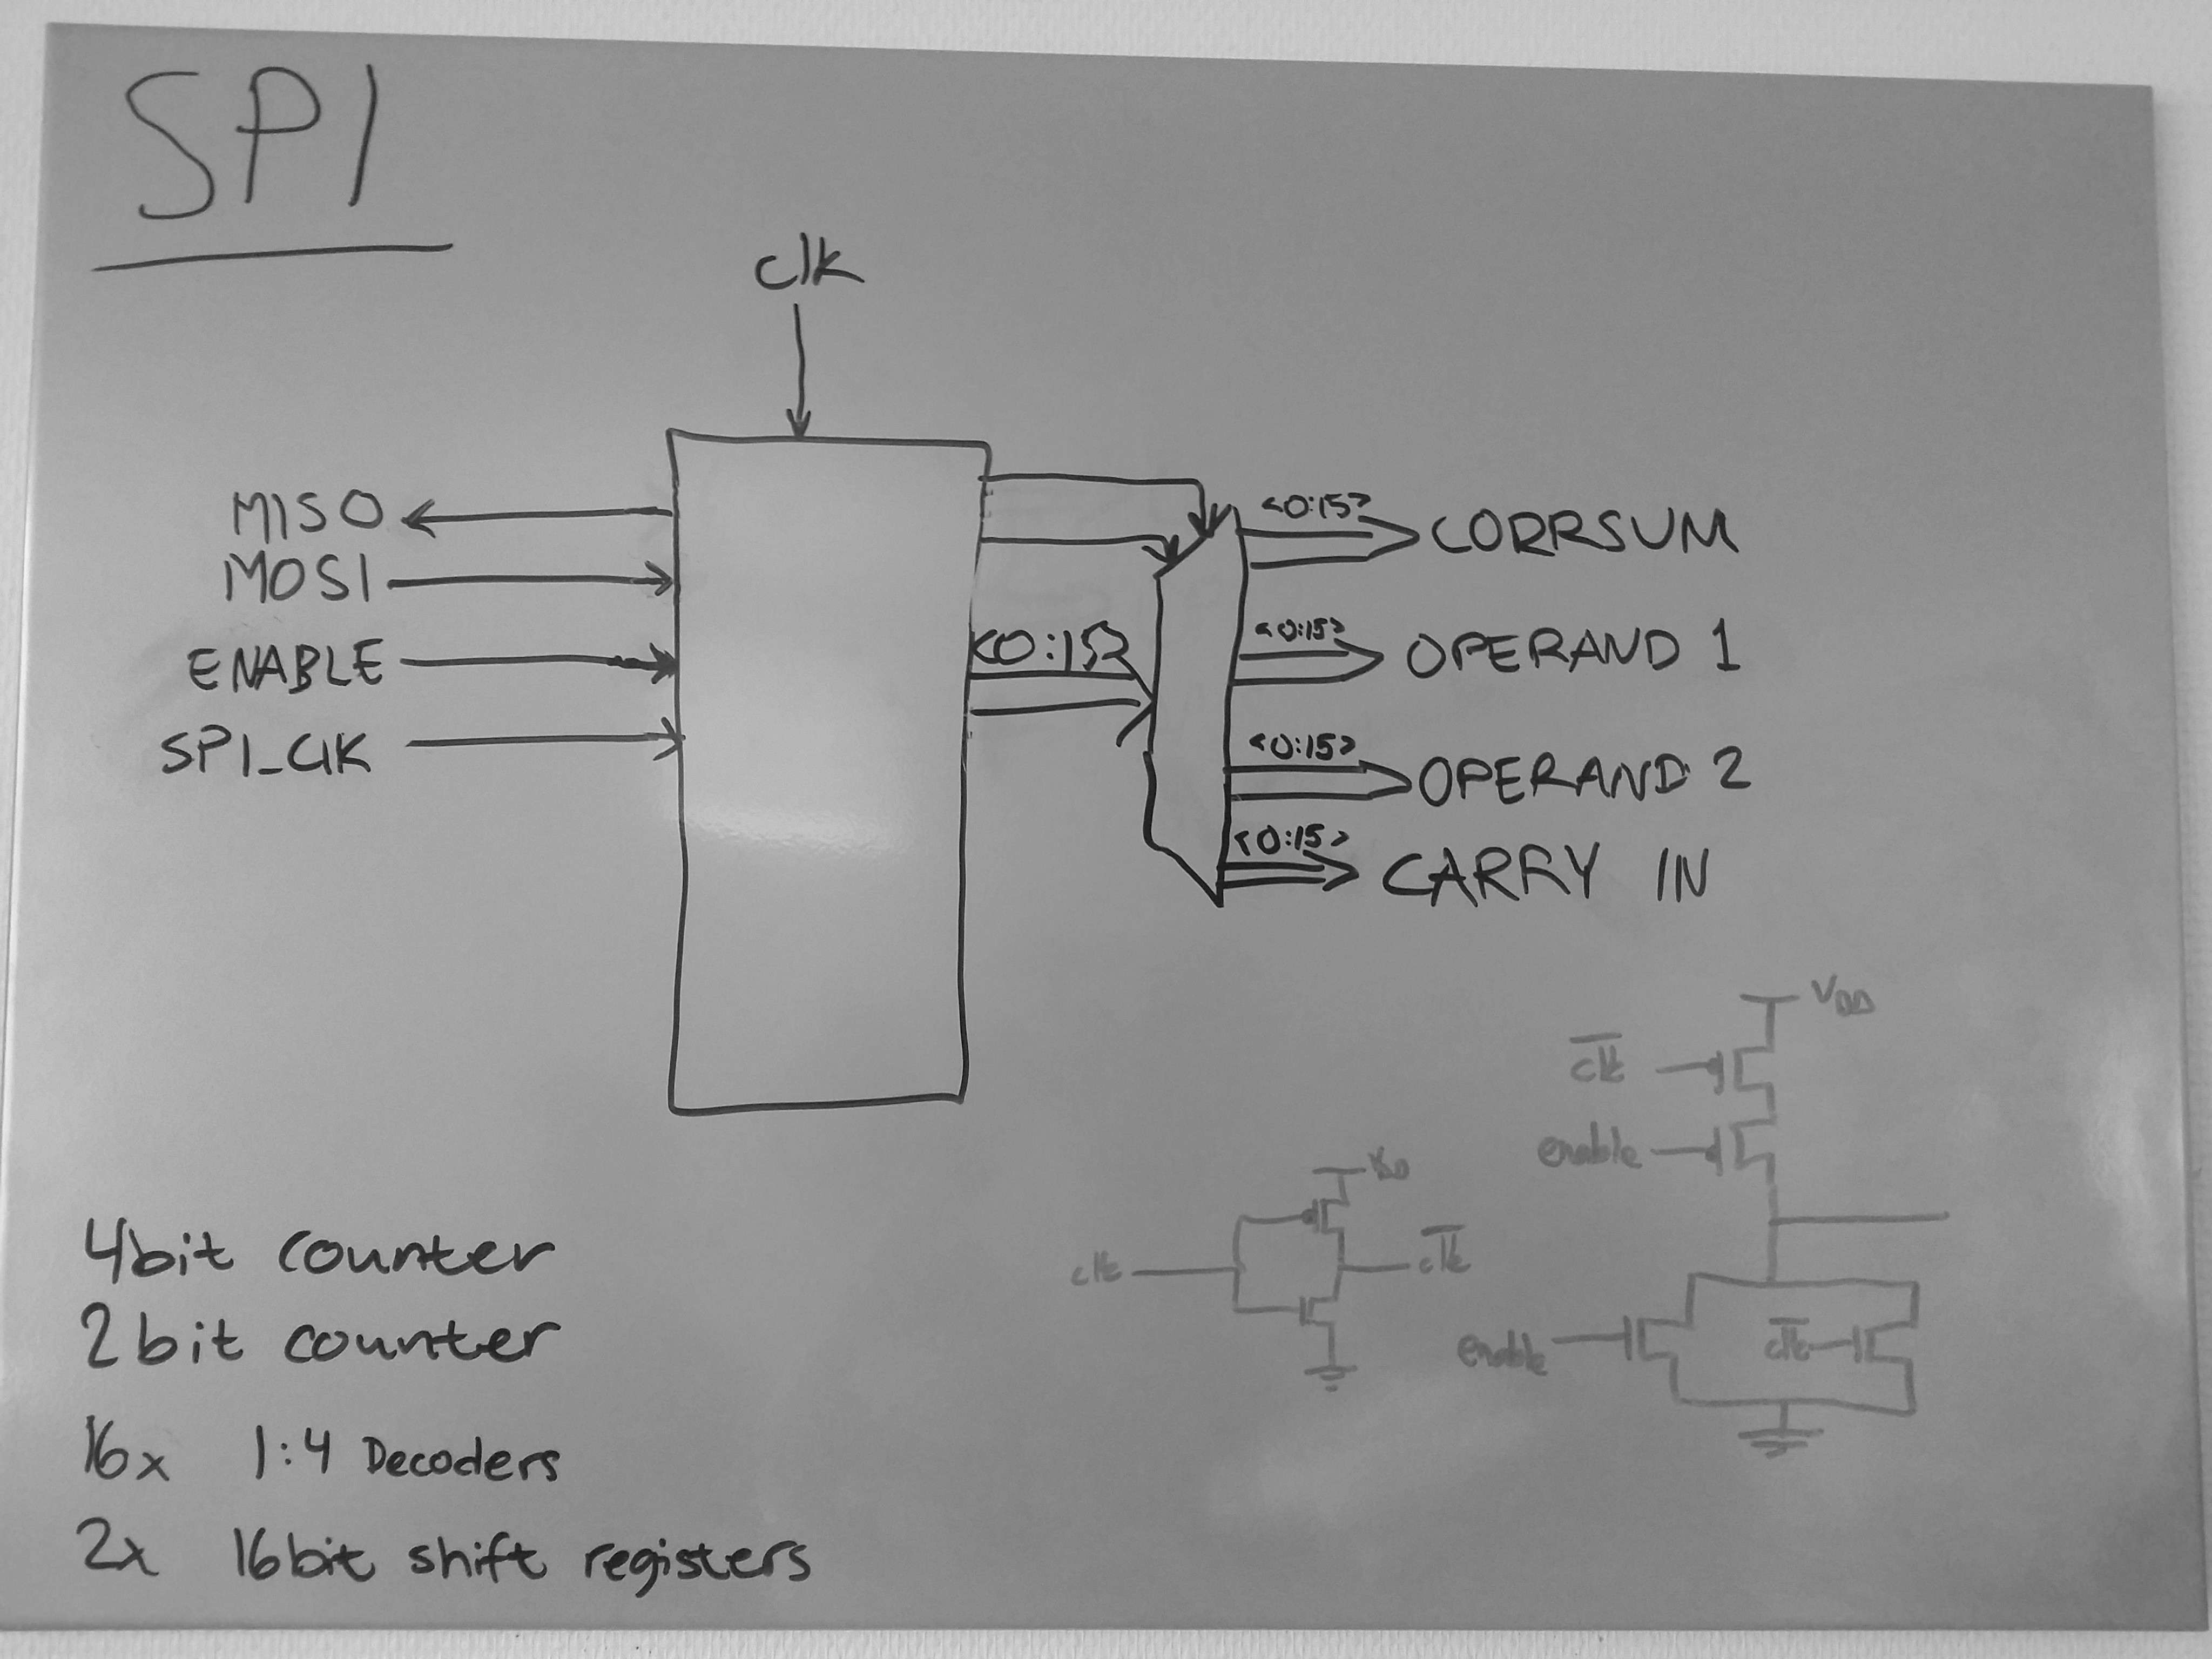 SPI
clk
MISO
MOSI
ENABLE
SPI_clK
<0:15>
<0:15> CORRSUM
<0:15> OPERAND 1
<0:15> OPERAND 2
<0:15> CARRY IN
VDD
clk
enable
VDD
clk
clk
enable
clk
4bit counter
2bit counter
16x 1:4 Decoders
2x 16bit shift registers